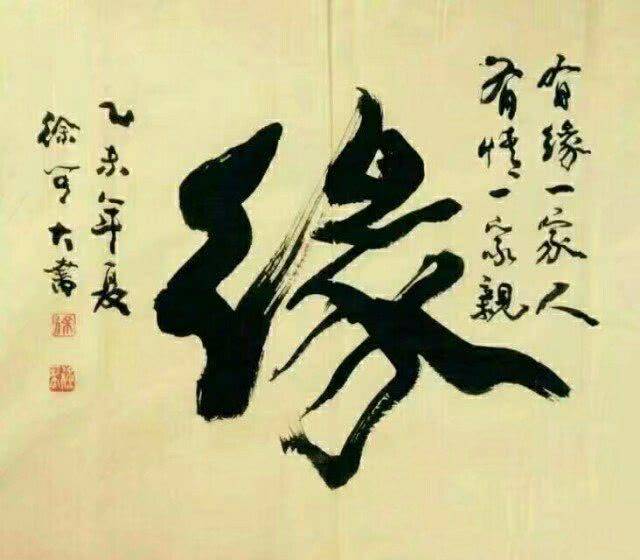 有缘一家人
有情一家親
缘
乙未年夏
徐
大書